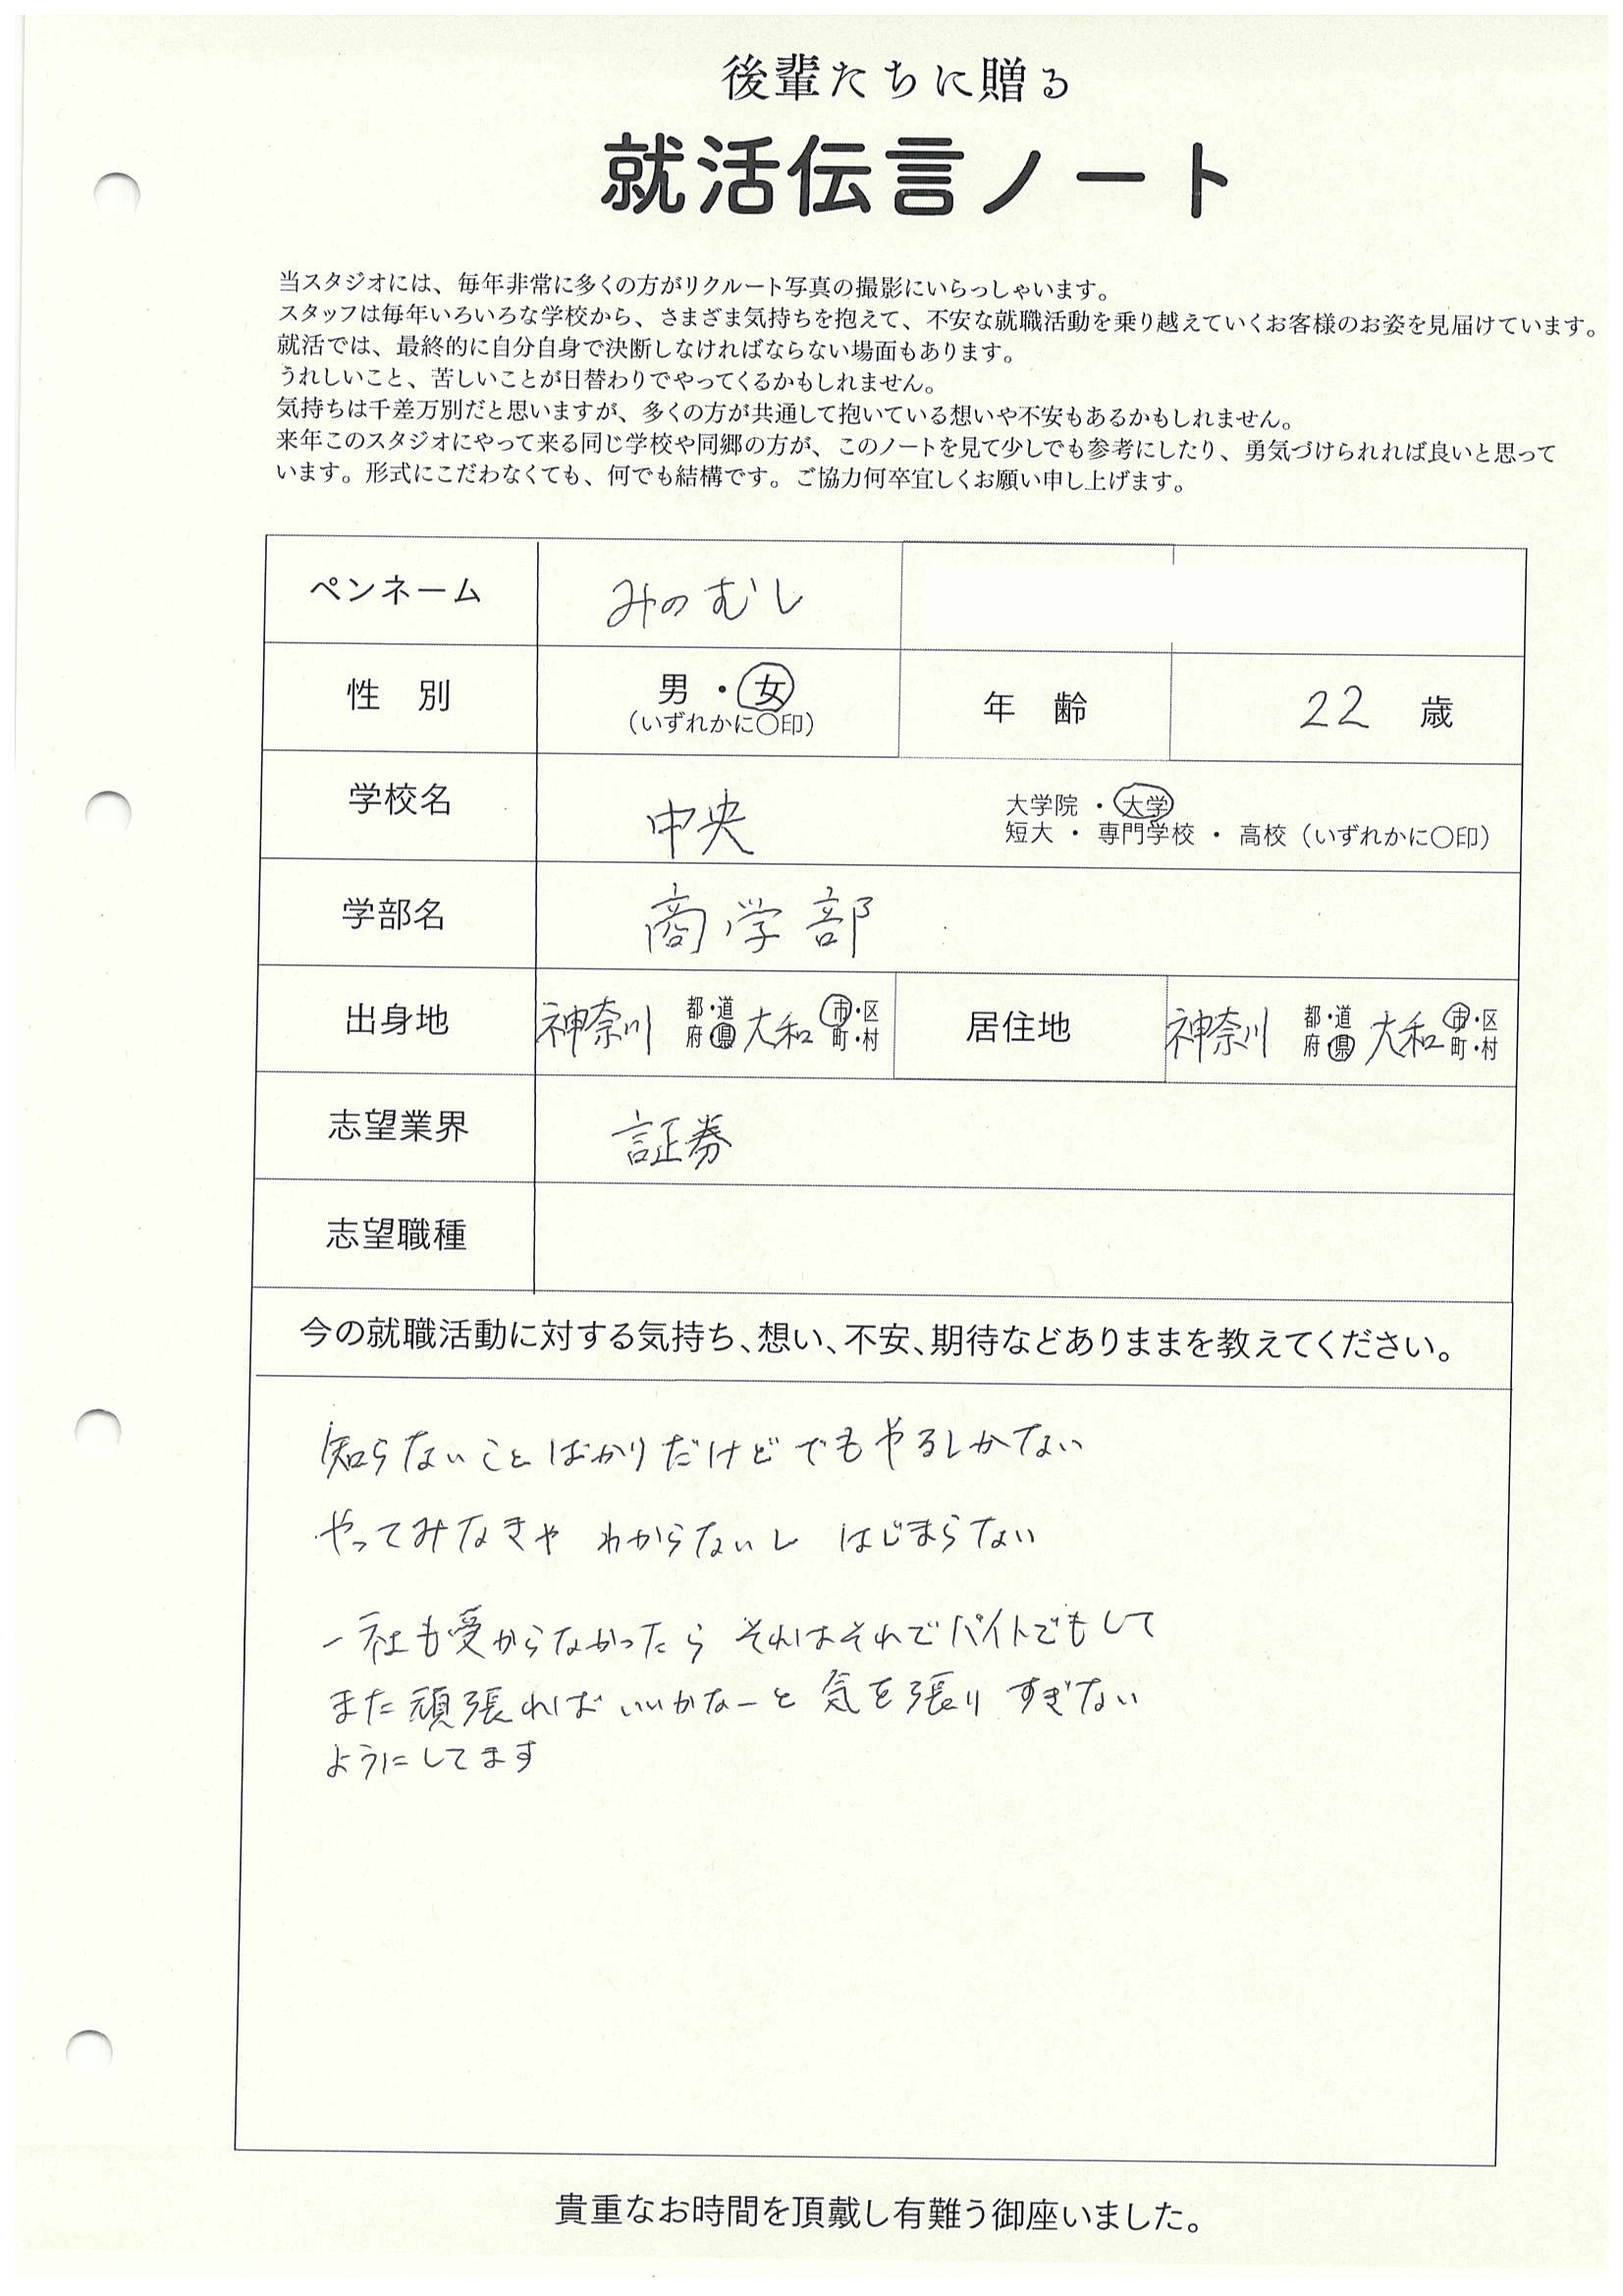 後輩たちに贈る
就活伝言ノート
当スタジオには、毎年非常に多くの方がリクルート写真の撮影にいらっしゃいます。
スタッフは毎年いろいろな学校から、さまざま気持ちを抱えて、不安な就職活動を乗り越えていくお客様のお姿を見届けています。
就活では、最終的に自分自身で決断しなければならない場面もあります。
うれしいこと、苦しいことが日替わりでやってくるかもしれません。
気持ちは千差万別だと思いますが、多くの方が共通して抱いている想いや不安もあるかもしれません。
来年このスタジオにやって来る同じ学校や同郷の方が、このノートを見て少しでも参考にしたり、勇気づけられれば良いと思って
います。形式にこだわなくても、何でも結構です。ご協力何卒宜しくお願い申し上げます。
ペンネーム みのむし
性 別 男・女 年 齢 22 歳
(いずれかに〇印)
学校名 中央 大学院 ・ 大学
短大 ・ 専門学校 ・ 高校 (いずれかに〇印)
学部名 商学部
出身地 神奈川 都・道府・県 大和 市・区町・村 居住地 神奈川 都・道府・県 大和 市・区町・村
志望業界 証券
志望職種
今の就職活動に対する気持ち、想い、不安、期待などありままを教えてください。
知らないことばかりだけど でもやるしかない
やってみなきゃ わからないし はじまらない
一社も受からなかったら それはそれでバイトでもして
また頑張ればいいかなーと 気を張りすぎない
ようにしてます
貴重なお時間を頂戴し有難う御座いました。